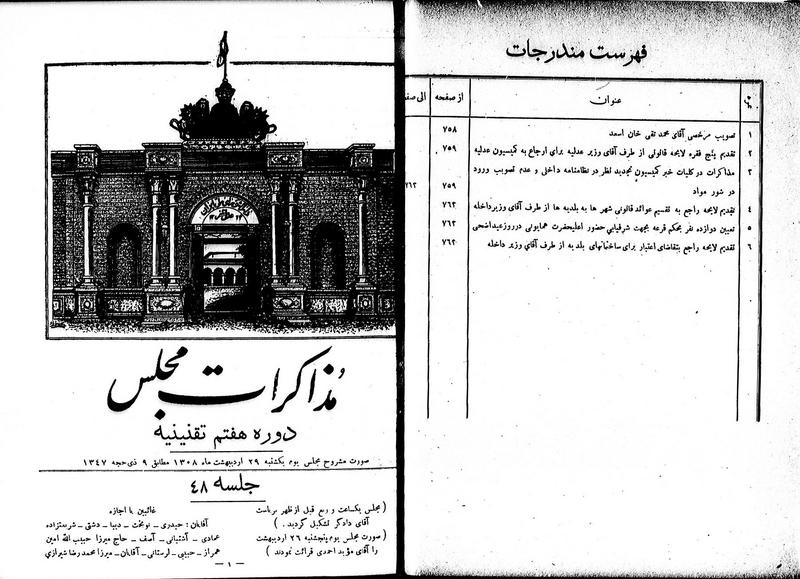 فهرست مندرجات
نمره
عنوان
از صفحه
الی صفحه
۱ تصویب مرخصی آقای محمد تقی خان اسعد ۷۵۸
۲ تقدیم پنج فقره لایحه قانونی از طرف آقای وزیر عدلیه برای ارجاع به کمیسیون عدلیه ۷۵۹
۳ مذاکرات در کلیات خبر کمیسیون تجدید نظر در نظامنامه داخلی و عدم تصویب ورود
در شور مواد ۷۵۹ ۷۶۲
۴ تقدیم لایحه راجع به تقسیم عوائد قانونی شهر ها به بلدیه ها از طرف آقای وزیر داخله ۷۶۲
۵ تعیین دوازده نفر بحکم قرعه بجهت شرفیابی حضور اعلیحضرت همایونی در روز عید اضحی ۷۶۲
۶ تقدیم لایحه راجع بتقاضای اعتبار برای ساختمانهای بلدیه از طرف آقای وزیر داخله ۷۶۲
مذاکرات مجلس
دوره هفتم تقنینیه
صورت مشروح مجلس یوم یکشنبه ۲۹ اردیبهشت ماه ۱۳۰۸ مطابق ۹ ذی حجه ۱۳۴۷
جلسه ۴۸
( مجلس یکساعت و ربع قبل از ظهر بریاست
آقای دادگر تشکیل گردید . )
( صورت مجلس یوم پنجشنبه ۲۶ اردیبهشت
را آقای مؤید احمدی قرائت نمودند )
غائبین با اجازه
آقایان : حیدری ـ نوبخت ـ دیبا ـ دشتی ـ شریعتزاده
عمادی ـ آشتیانی ـ آصف ـ حاج میرزا حبیب الله امین
همراز ـ حبیبی ـ لرستانی ـ آقایان ـ میرزا محمد رضا شیرازی
ـ ۱ ـ